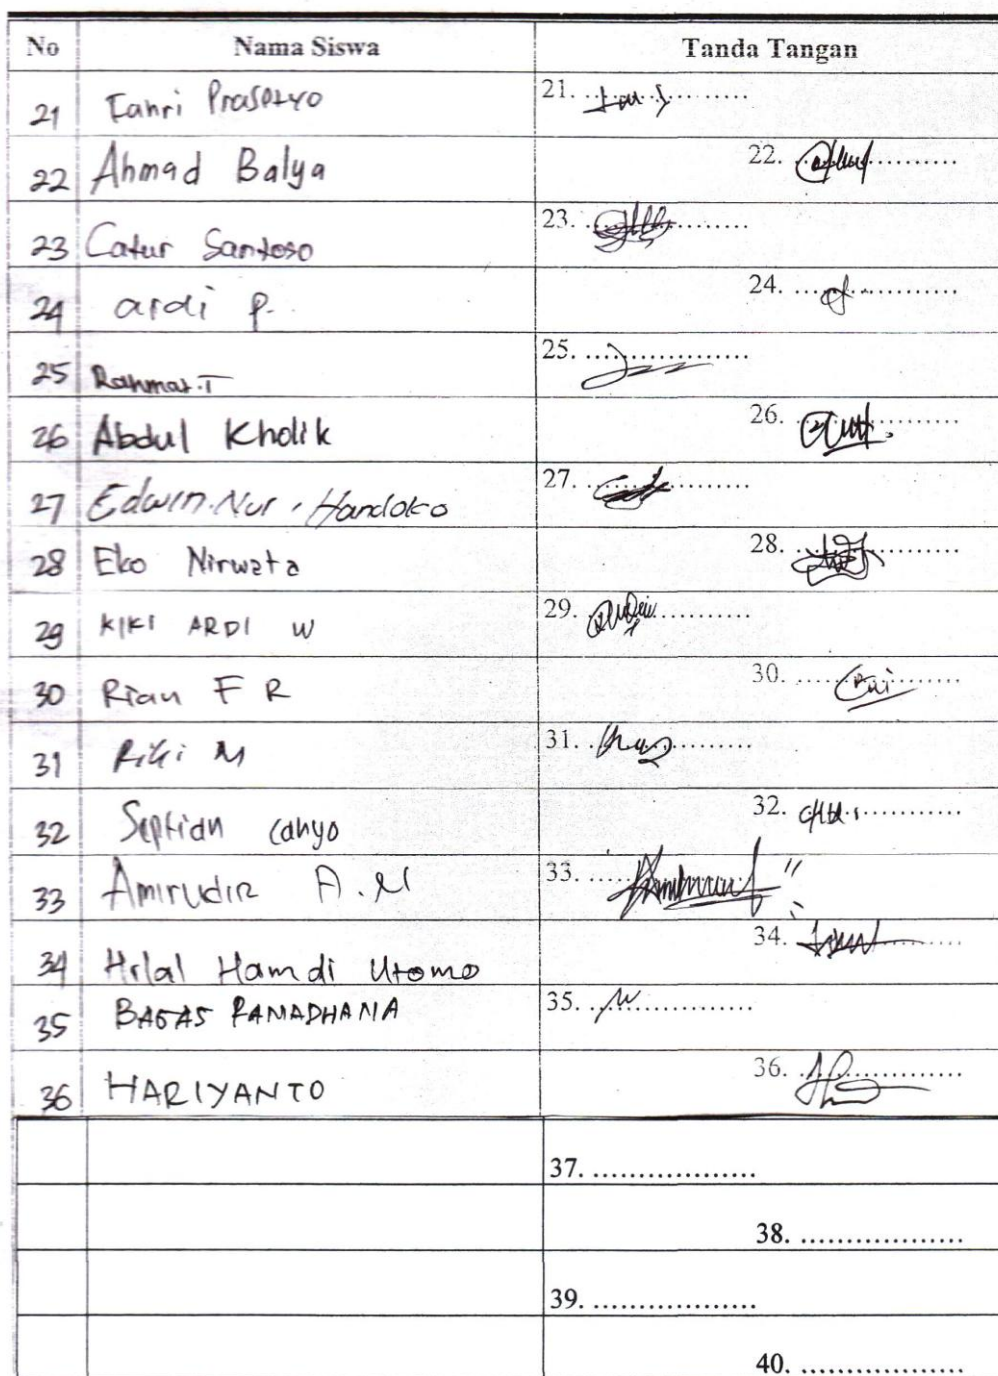 No Nama Siswa Tanda Tangan
21 Fahri Prasetyo 21. ..................
22 Ahmad Balya 22. ..................
23 Catur Santoso 23. ..................
24 ardi p. 24. ..................
25 Rahmat.T 25. ..................
26 Abdul Kholik 26. ..................
27 Edwin.Nur.Handoko 27. ..................
28 Eko Nirwata 28. ..................
29 KIKI ARDI W 29. ..................
30 Rian F R 30. ..................
31 Riki M 31. ..................
32 Septian cahyo 32. ..................
33 Amirudin A.M 33. ..................
34 Hilal Hamdi Utomo 34. ..................
35 BAGAS RAMADHANA 35. ..................
36 HARIYANTO 36. ..................
37. ..................
38. ..................
39. ..................
40. ..................